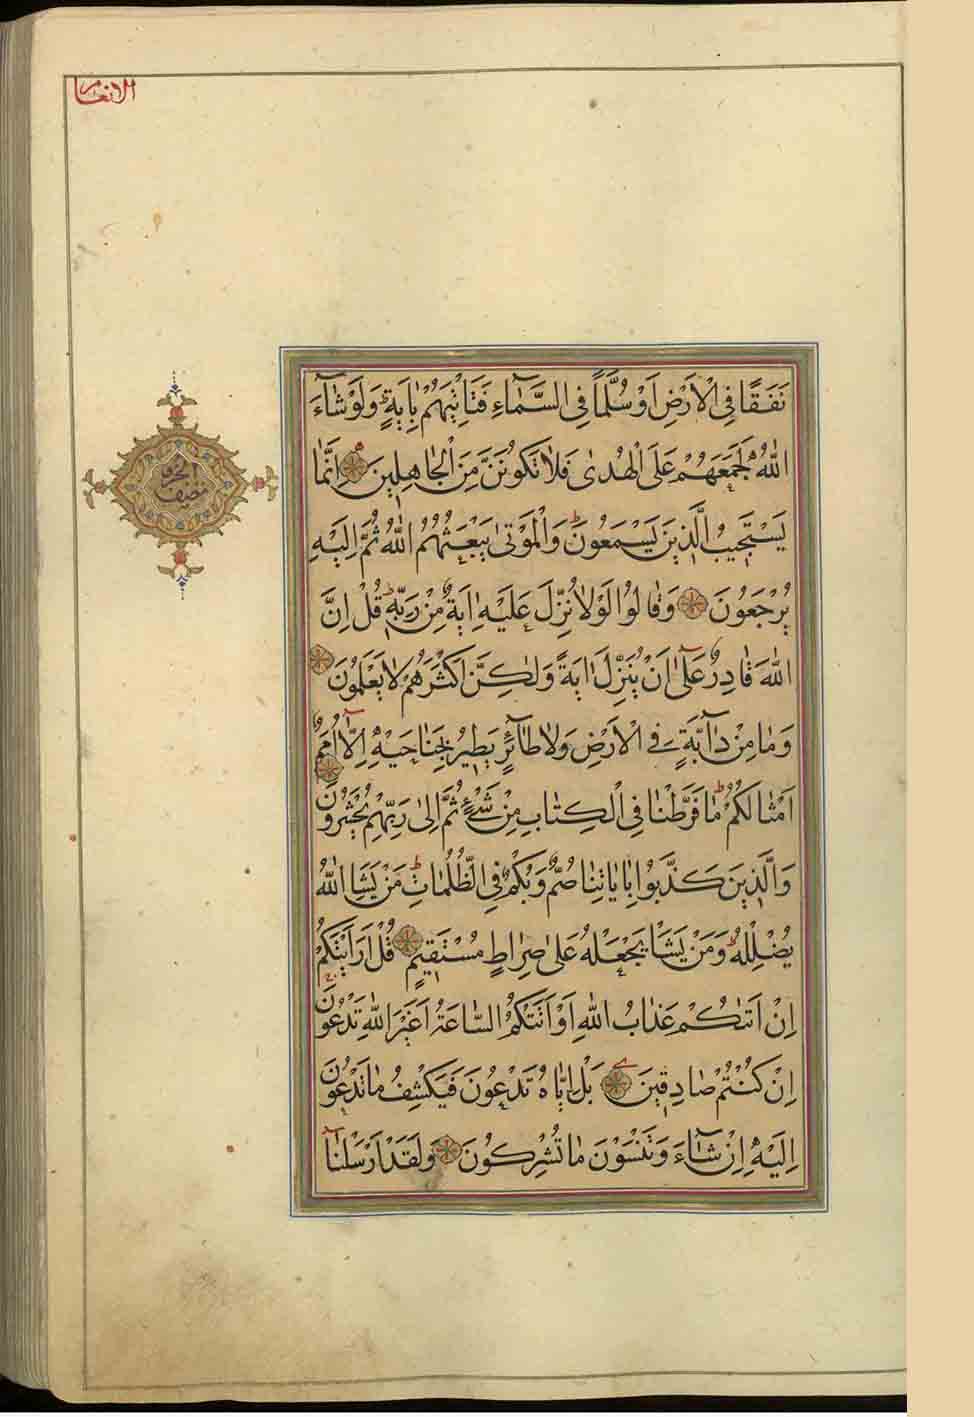 الانعام
نَفَقًا فِى الْاَرْضِ اَوْ سُلَّمًا فِى السَّمَٓاءِ فَتَاْتِيَهُمْ بِاٰيَةٍ ۜ وَلَوْ شَٓاءَ
اللّٰهُ لَجَمَعَهُمْ عَلَى الْهُدٰى فَلَا تَكُونَنَّ مِنَ الْجَاهِلِينَ اِنَّمَا
يَسْتَجِيبُ الَّذِينَ يَسْمَعُونَ ۜ وَالْمَوْتٰى يَبْعَثُهُمُ اللّٰهُ ثُمَّ اِلَيْهِ
يُرْجَعُونَ وَقَالُوا لَوْلَا نُزِّلَ عَلَيْهِ اٰيَةٌ مِنْ رَبِّهِ ۜ قُلْ اِنَّ
اللّٰهَ قَادِرٌ عَلٰٓى اَنْ يُنَزِّلَ اٰيَةً وَلٰكِنَّ اَكْثَرَهُمْ لَا يَعْلَمُونَ
وَمَا مِنْ دَٓابَّةٍ فِى الْاَرْضِ وَلَا طَٓائِرٍ يَطِيرُ بِجَنَاحَيْهِ اِلَّٓا اُمَمٌ
اَمْثَالُكُمْ ۜ مَا فَرَّطْنَا فِى الْكِتَابِ مِنْ شَىْءٍ ثُمَّ اِلٰى رَبِّهِمْ يُحْشَرُونَ
وَالَّذِينَ كَذَّبُوا بِاٰيَاتِنَا صُمٌّ وَبُكْمٌ فِى الظُّلُمَاتِ ۜ مَنْ يَشَاِ اللّٰهُ
يُضْلِلْهُ ۜ وَمَنْ يَشَاْ يَجْعَلْهُ عَلٰى صِرَاطٍ مُسْتَقِيمٍ قُلْ اَرَاَيْتَكُمْ
اِنْ اَتٰيكُمْ عَذَابُ اللّٰهِ اَوْ اَتَتْكُمُ السَّاعَةُ اَغَيْرَ اللّٰهِ تَدْعُونَ
اِنْ كُنْتُمْ صَادِقِينَ بَلْ اِيَّاهُ تَدْعُونَ فَيَكْشِفُ مَا تَدْعُونَ
اِلَيْهِ اِنْ شَٓاءَ وَتَنْسَوْنَ مَا تُشْرِكُونَ وَلَقَدْ اَرْسَلْنَٓا